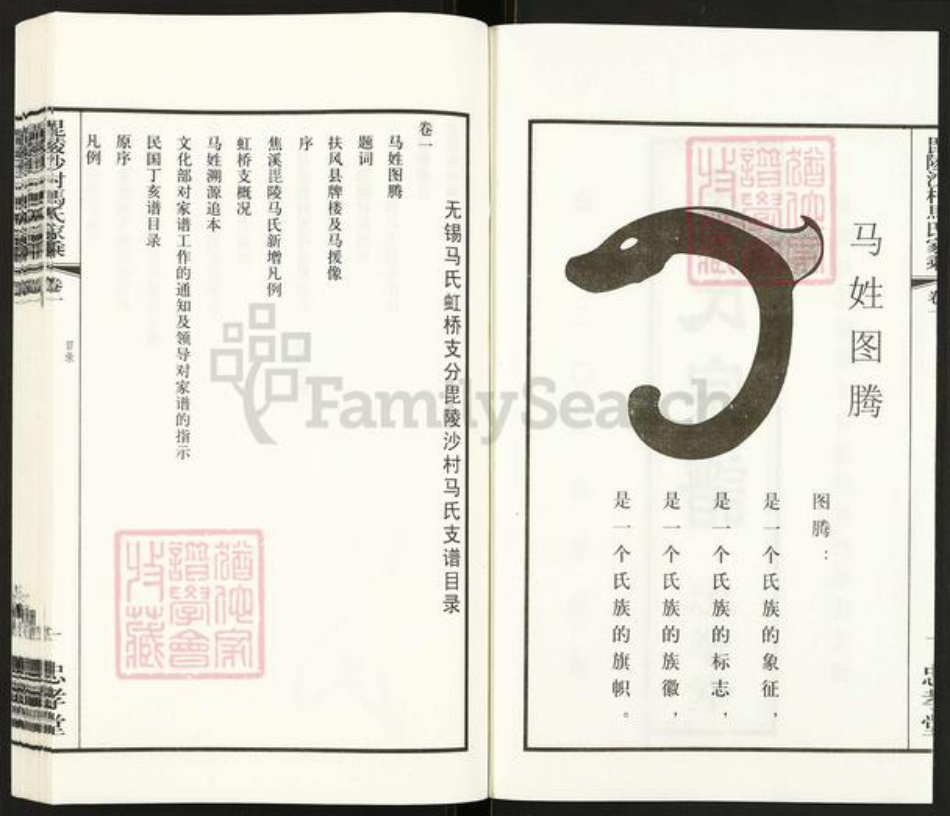 马姓图腾
图腾：
是一个氏族的象征，
是一个氏族的标志，
是一个氏族的族徽，
是一个氏族的旗帜。
忠孝堂
无锡马氏虹桥支分毘陵沙村马氏支谱目录
卷一
马姓图腾
题词
扶风县牌楼及马援像
序
焦溪毘陵马氏新增凡例
虹桥支概况
马姓溯源追本
文化部对家谱工作的通知及领导对家谱的指示
民国丁亥谱目录
原序
凡例
毘陵沙村馬氏家乘
卷一
目录
一
忠孝堂
猶他家
譜學會
收藏
FamilySearch